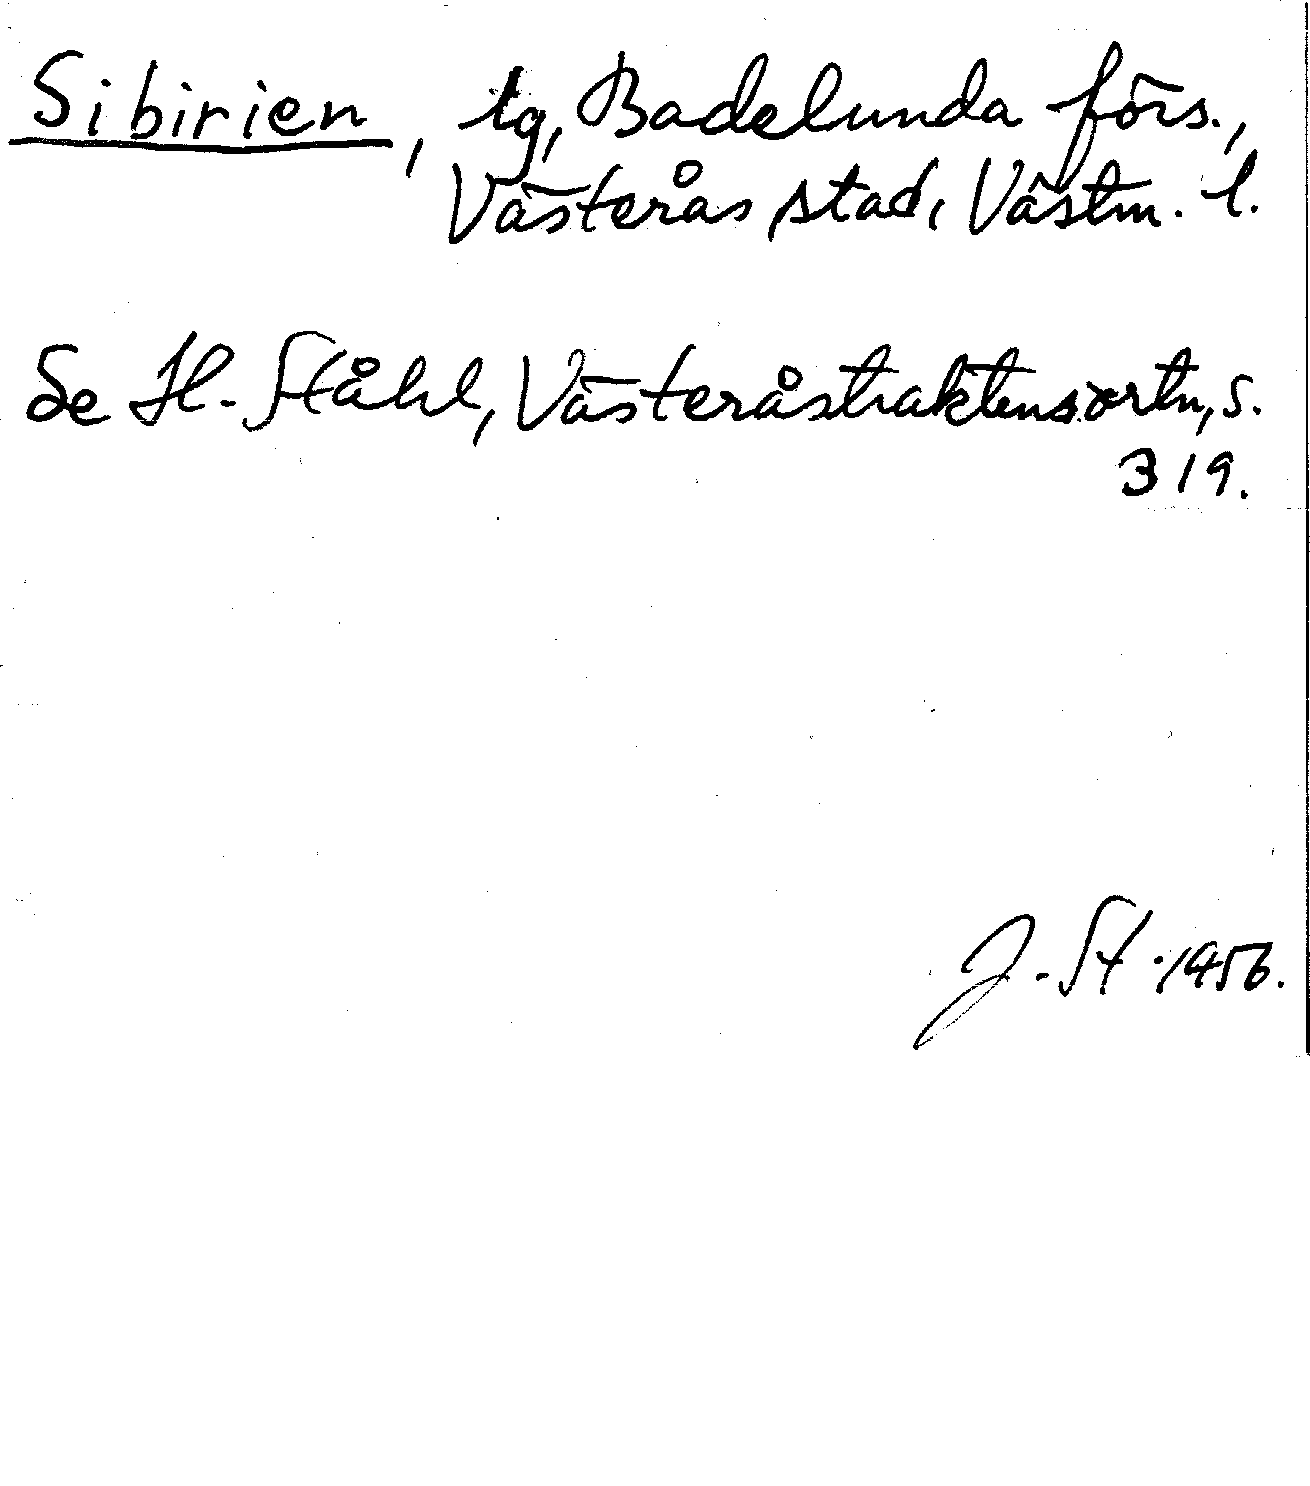 Sibirien, lg, Badelunda förs.,
Västerås stad, Västm. l.
Se H. Ståhl, Västeråstraktens ortn, s.
319.
J. St. 1956.